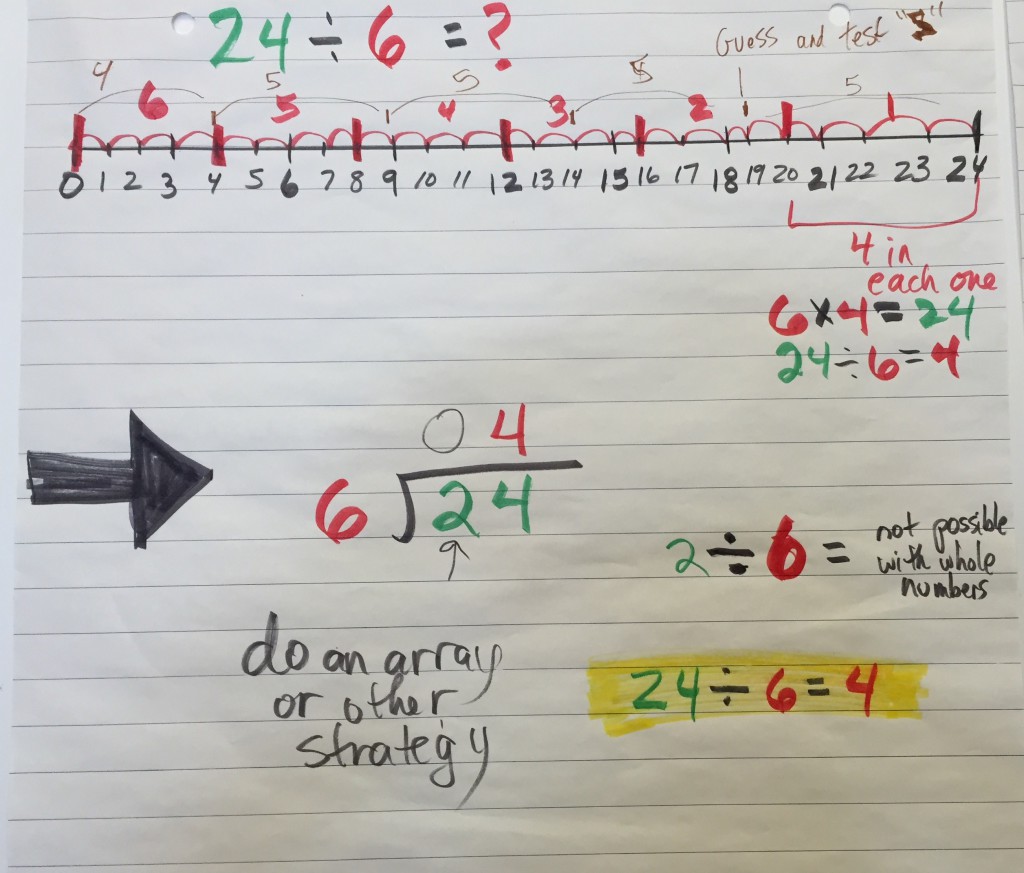 24 ÷ 6 = ?
Guess and test "5"
4 5 5 5 5
6 5 4 3 2 1
0 1 2 3 4 5 6 7 8 9 10 11 12 13 14 15 16 17 18 19 20 21 22 23 24
4 in
each one
6 x 4 = 24
24 ÷ 6 = 4
0 4
6 24
2 ÷ 6 = not possible
with whole
numbers
do an array
or other
strategy
24 ÷ 6 = 4